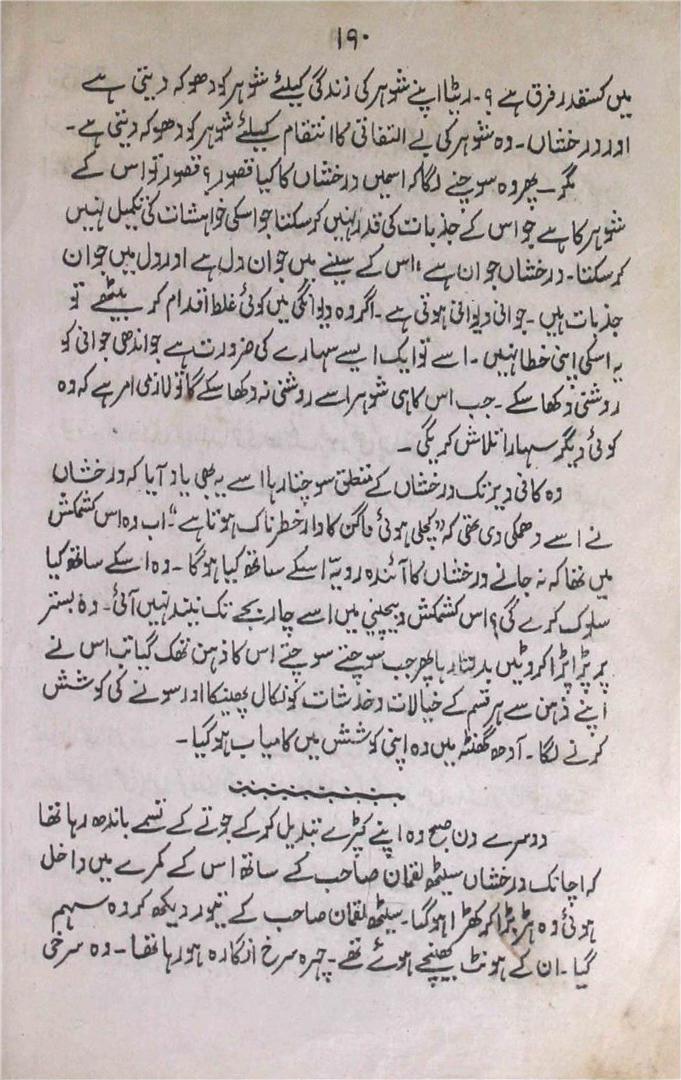 ۱۹۰
میں کسقدر فرق ہے ؟ ۔ ریٹا اپنے شوہر کی زندگی کیلئے شوہر کو دھوکہ دیتی ہے
اور درخشاں ۔ وہ شوہر کی بے التفاتی کا انتقام کیلئے شوہر کو دھوکہ دیتی ہے ۔
مگر ۔ پھر وہ سوچنے لگا کہ اسمیں درخشاں کا کیا قصور ؟ قصور تو اس کے
شوہر کا ہے جو اس کے جذبات کی قدر نہیں کر سکتا جو اسکی خواہشات کی تکمیل نہیں
کر سکتا ۔ درخشاں جوان ہے ، اس کے سینے میں جوان دل ہے اور دل میں جوان
جذبات ہیں ۔ جوانی دیوانی ہوتی ہے ۔ اگر وہ دیوانگی میں کوئی غلط اقدام کر بیٹھے تو
یہ اسکی اپنی خطا نہیں ۔ اسے تو ایک ایسے سہارے کی ضرورت ہے جو اندھی جوانی کو
روشنی دکھا سکے ۔ جب اس کا ہی شوہر اسے روشنی نہ دکھا سکے گا تو لازمی امر ہے کہ وہ
کوئی دیگر سہارا تلاش کریگی ۔
وہ کافی دیر تک درخشاں کے متعلق سوچتا رہا اسے یہ بھی یاد آیا کہ درخشاں
نے اسے دھمکی دی تھی کہ "کچلی ہوئی ناگن کا وار خطرناک ہوتا ہے"۔ اب وہ اس کشمکش
میں تھا کہ نہ جانے درخشاں کا آئندہ رویہ اسکے ساتھ کیا ہوگا ۔ وہ اسکے ساتھ کیا
سلوک کرے گی ؟ اس کشمکش و بیچینی میں اسے چار بجے تک نیند نہیں آئی ۔ وہ بستر
پر پڑا پڑا کروٹیں بدلتا رہا پھر جب سوچتے سوچتے اس کا ذہن تھک گیا تب اس نے
اپنے ذہن سے ہر قسم کے خیالات و خدشات کو نکال پھینکا اور سونے کی کوشش
کرنے لگا ۔ آدھ گھنٹہ میں وہ اپنی کوشش میں کامیاب ہو گیا ۔
دوسرے دن صبح وہ اپنے کپڑے تبدیل کر کے جوتے کے تسمے باندھ رہا تھا
کہ اچانک درخشاں سیٹھ لقمان صاحب کے ساتھ اس کے کمرے میں داخل
ہوئی وہ ہڑبڑا کر کھڑا ہو گیا ۔ سیٹھ لقمان صاحب کے تیور دیکھ کر وہ سہم
گیا ۔ ان کے ہونٹ بھینچے ہوئے تھے ۔ چہرہ سرخ انگارہ ہو رہا تھا ۔ وہ سرخی